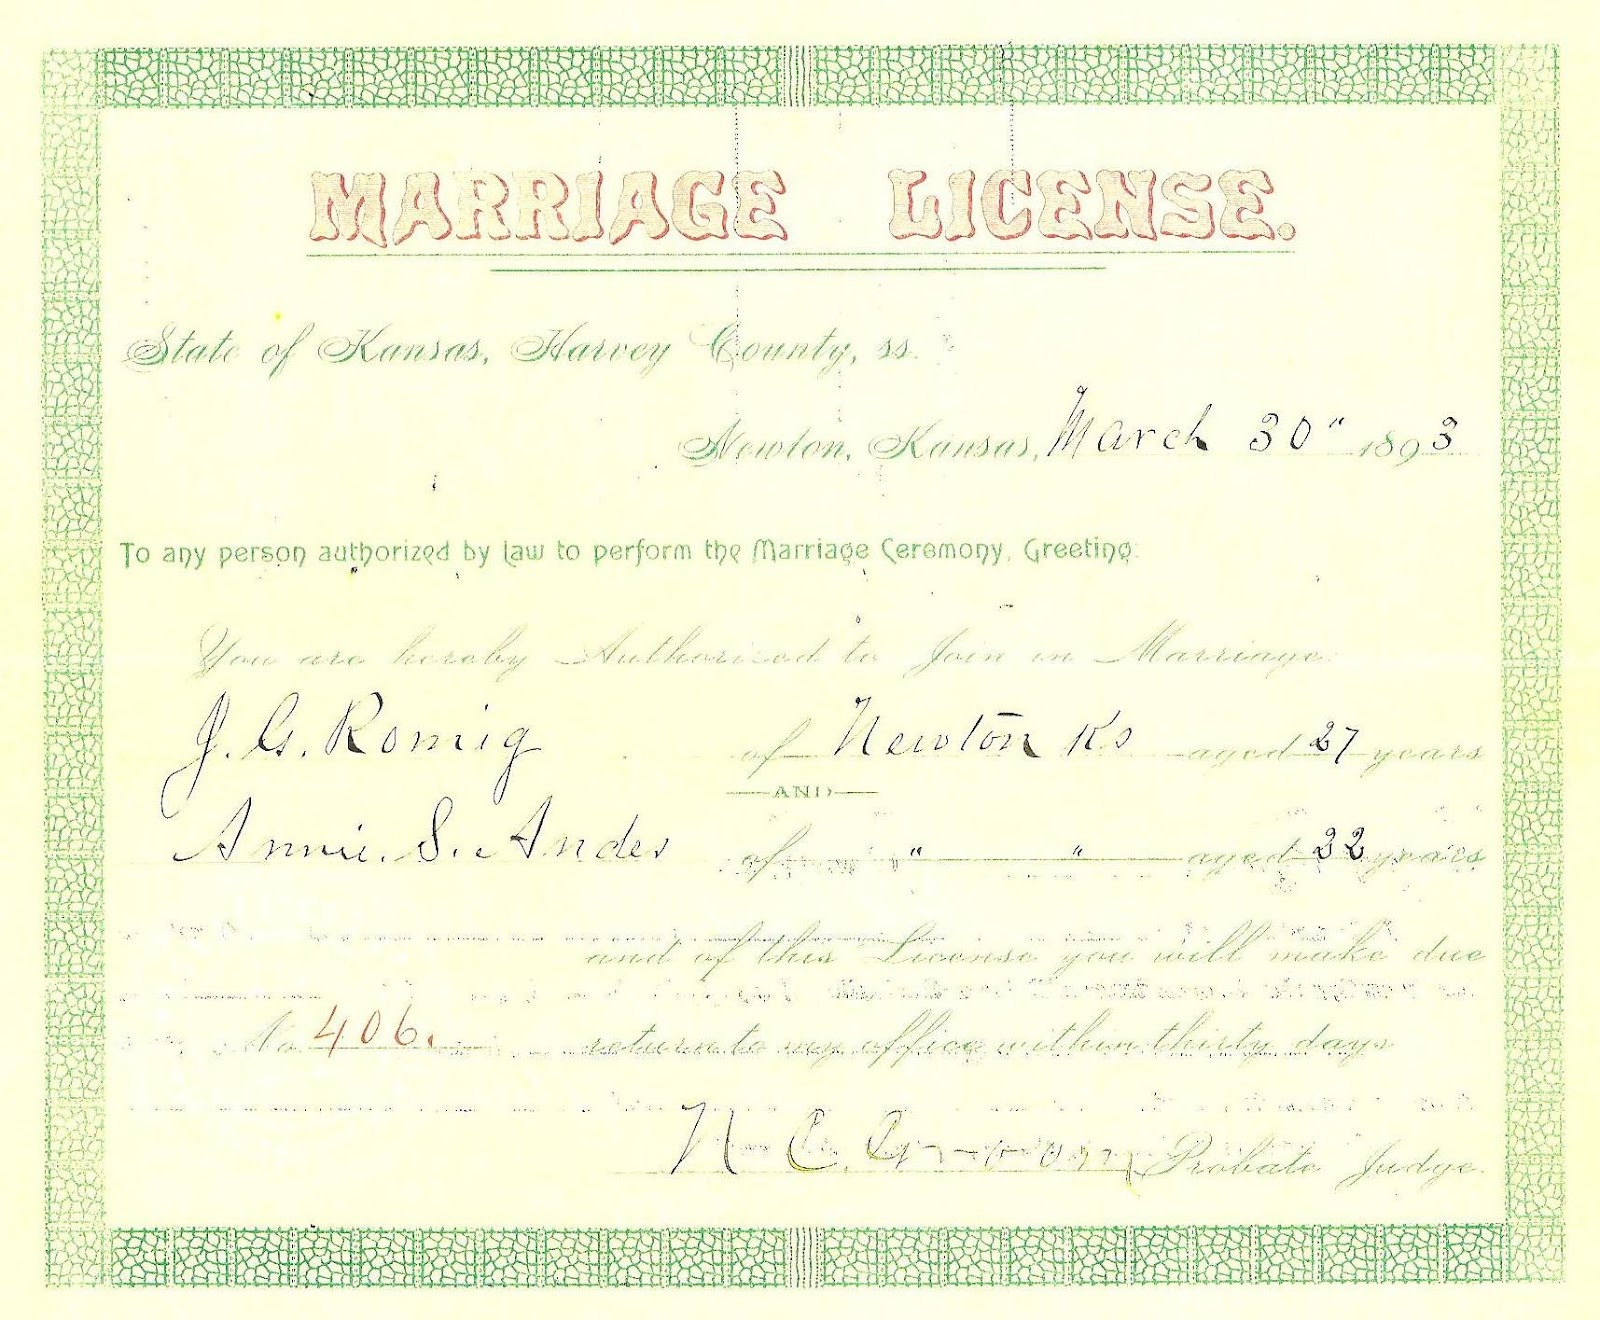 MARRIAGE LICENSE.
State of Kansas, Harvey County, ss.
Newton, Kansas, March 30" 1893
To any person authorized by law to perform the Marriage Ceremony, Greeting:
You are hereby Authorized to Join in Marriage
J. G. Romig of Newton Ks aged 27 years
AND
Annie. S. Andes of " " aged 22 years
and of this License you will make due
No 406. return to my office within thirty days
N C. Probate Judge.